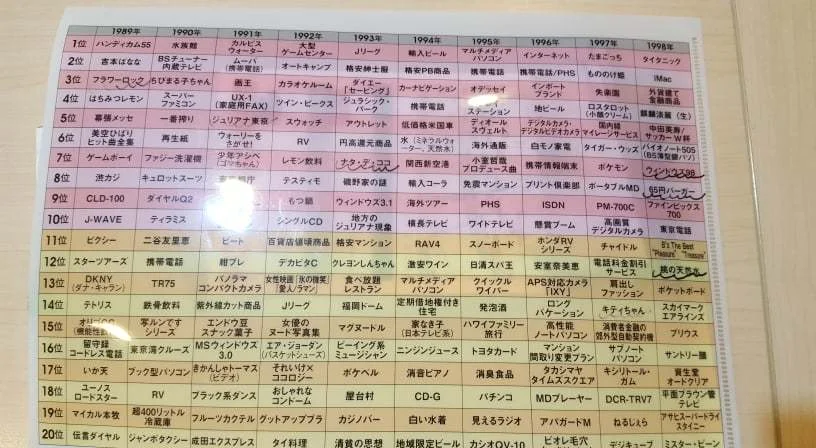 1989年 1990年 1991年 1992年 1993年 1994年 1995年 1996年 1997年 1998年
1位 ハンディカム55 水族館 カルピスウォーター 大型ゲームセンター Jリーグ 輸入ビール マルチメディアパソコン インターネット たまごっち タイタニック
2位 吉本ばなな BSチューナー内蔵テレビ ムーバ(携帯電話) オートキャンプ 格安紳士服 格安PB商品 携帯電話 携帯電話/PHS もののけ姫 iMac
3位 フラワーロック ちびまる子ちゃん 画王 カラオケルーム ダイエー「セービング」 カーナビゲーション オデッセイ インポートブランド 失楽園 外貨建て金融商品
4位 はちみつレモン スーパーファミコン UX-1(家庭用FAX) ツイン・ピークス ジュラシック・パーク 携帯電話 ステーション 地ビール ロスタロット(小顔クリーム) 麒麟淡麗〈生〉
5位 幕張メッセ 一番搾り ジュリアナ東京 スウォッチ アウトレット 低価格米国車 ディオールスヴェルト デジタルカメラ・デジタルビデオカメラ 国内線マイレージサービス 中田英寿/サッカーW杯
6位 美空ひばりヒット曲全集 再生紙 ウォーリーをさがせ! RV 円高還元商品 水(ミネラルウォーター、天然水) 海外通販 白モノ家電 タイガー・ウッズ バイオノート505(B5薄型銀パソ)
7位 ゲームボーイ ファジー洗濯機 少年アシベ(ゴマちゃん) レモン飲料 ナタ・デ・ココ 関西新空港 小室哲哉プロデュース曲 携帯情報端末 ポケモン ウィンドウズ98
8位 渋カジ キュロットスーツ テスティモ 磯野家の謎 輸入コーラ 免震マンション プリント倶楽部 ポータブルMD 65円バーガー
9位 CLD-100 ダイヤルQ2 もつ鍋 ウィンドウズ3.1 海外ツアー PHS ISDN PM-700C ファインピックス700
10位 J-WAVE ティラミス シングルCD 地方のジュリアナ現象 横長テレビ ワイドテレビ 懸賞ブーム 高画質デジタルカメラ 東京電話
11位 ピクシー 二谷友里恵 ビート 百貨店値頃商品 格安マンション RAV4 スノーボード ホンダRVシリーズ チャイドル B'z The Best "Pleasure" "Treasure"
12位 スターツアーズ 携帯電話 紺ブレ デカビタC クレヨンしんちゃん 激安ワイン 日清スパ王 安室奈美恵 電話料金割引サービス 桃の天然水
13位 DKNY(ダナ・キャラン) TR75 パノラマコンパクトカメラ 女性映画「氷の微笑」「愛人/ラマン」 食べ放題レストラン マルチメディアパソコン クイックルワイパー APS対応カメラ「IXY」 肩出しファッション ポケットボード
14位 テトリス 鉄骨飲料 紫外線カット商品 Jリーグ 福岡ドーム 定期借地権付き住宅 発泡酒 ロングバケーション キティちゃん スカイマークエアラインズ
15位 写ルンですシリーズ エンドウ豆スナック菓子 女優のヌード写真集 マグヌードル 家なき子(日本テレビ系) ハワイファミリー旅行 高性能ノートパソコン 消費者金融の郊外型自動契約機 プリウス
16位 留守録コードレス電話 東京湾クルーズ MSウィンドウズ3.0 エア・ジョーダン(バスケットシューズ) ビーイング系ミュージシャン ニンジンジュース トヨタカード マンション間取り変更プラン サブノートパソコン サントリー膳
17位 いか天 ブック型パソコン きかんしゃトーマス(ビデオ) それいけ×ココロジー ポケベル 消音ピアノ 消臭食品 タカシマヤタイムズスクエア キシリトール・ガム 資生堂オードクリア
18位 ユーノスロードスター RV ブラック系ダンス おしゃれなコンドーム 屋台村 CD-G パチンコ MDプレーヤー DCR-TRV7 平面ブラウン管テレビ
19位 マイカル本牧 超400リットル冷蔵庫 フルーツカクテル グットアップブラ カジノバー 白い水着 見えるラジオ アバガードM ねるじぇら アサヒスーパードライスタイニー
20位 伝言ダイヤル ジャンボタクシー 成田エクスプレス タイ料理 清貧の思想 地域限定ビール カシオQV-10 ピオレ毛穴 デジキューブ ミスター・ビーン